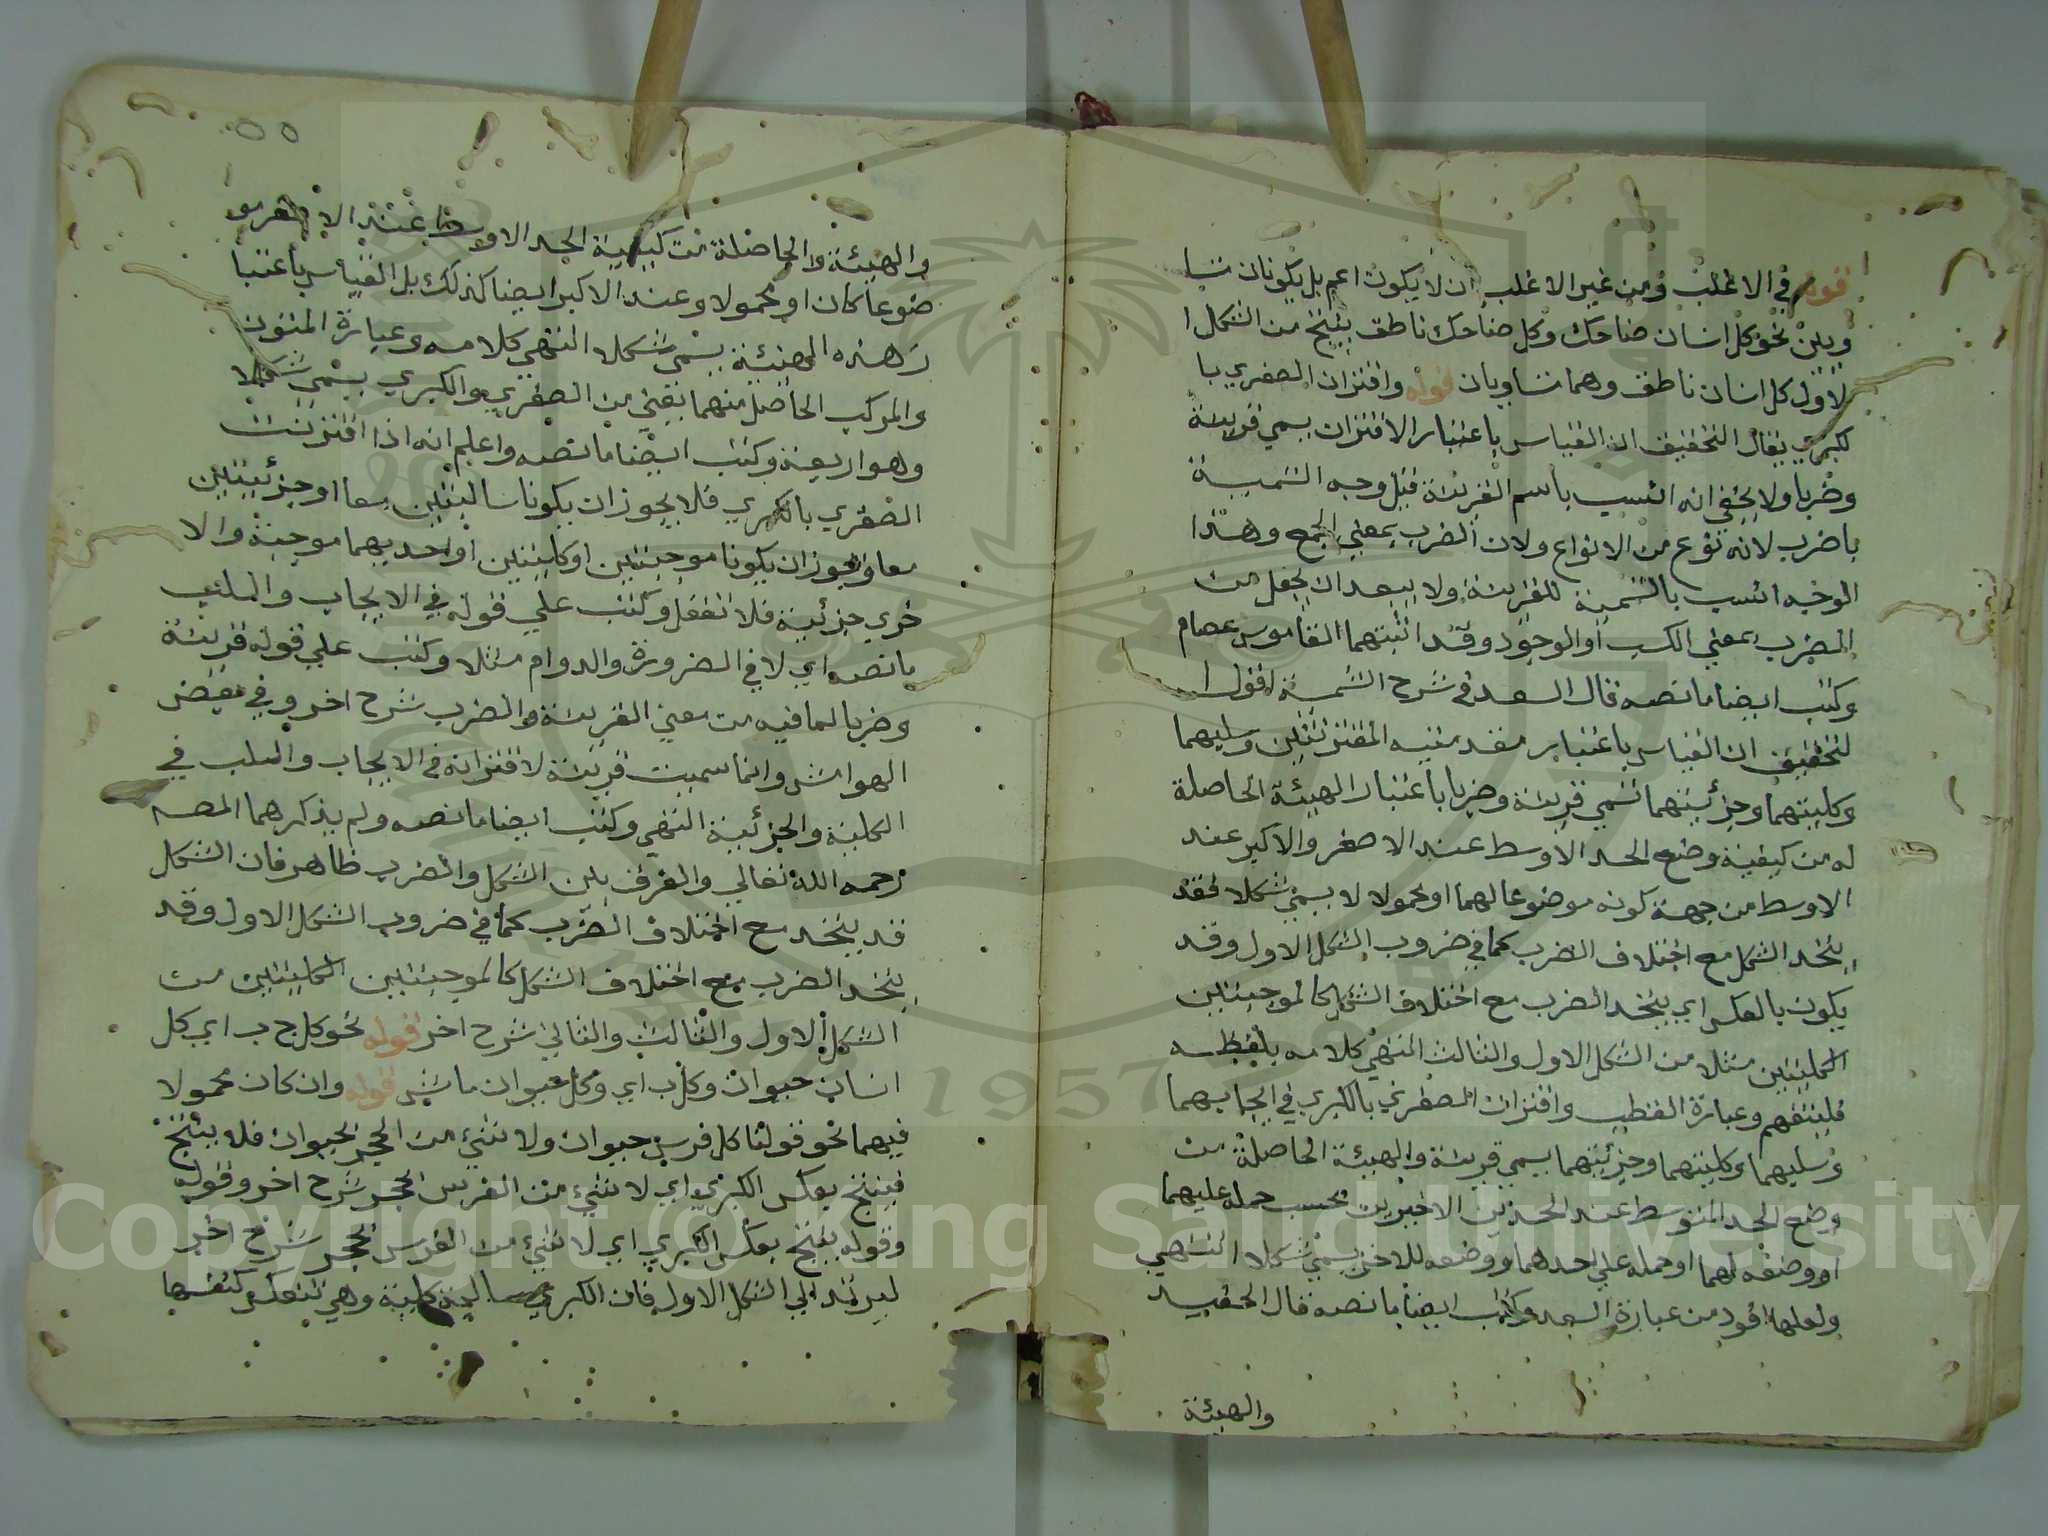 قوله في الاغلب ومن غير الاغلب ان لا يكون اعم بل يكونان متسا
ويين نحو كل انسان ضاحك وكل ضاحك ناطق ينتج من الشكل ا
لاول كل انسان ناطق وهما متساويان قوله واقتران الصغري با
لكبري يقال التحقيق ان القياس باعتبار الاقتران يسمي قرينة
وضربا ولا يخفي انه انسب باسم القرينة قيل وجه التسمية
باضرب لانه نوع من الانواع ولان الضرب بمعني الجمع وهذا
الوجه انسب بالتسمية للقرينة ولا يبعد ان يجعل من
الضرب بمعني الكسب او الوجود وقد اثبتهما القاموس عصام
وكتب ايضا ما نصه قال السعد في شرح الشمسية اقول ا
لتحقيق ان القياس باعتبار مقدمتيه المقترنتين وسلبهما
وكليتهما وجزئيتهما تسمي قرينة وضربا باعتبار الهيئة الحاصلة
له من كيفية وضع الحد الاوسط عند الاصغر والاكبر عند
الاوسط من جهة كونه موضوعا لهما او محمولا لا يسمي شكلا فقد
يتحد الشكل مع اختلاف الضرب كما في ضروب الشكل الاول وقد
يكون بالعكس اي يتحد الضرب مع اختلاف الشكل كالموجبتين
الكليتين مثلا من الشكل الاول والثالث انتهي كلامه بلفظه
فليتفهم وعبارة القطب واقتران الصغري بالكبري في ايجابهما
وسلبهما وكليتهما وجزئيتهما يسمي قرينة والهيئة الحاصلة من
وضع الحد المتوسط عند الحدين الاخيرين بحسب حمله عليهما
او وضعه لهما او حمله علي احدهما ووضعه للاخر يسمي شكلا انتهي
ولعلها اقود من عبارة السعد وكتب ايضا ما نصه قال الحفيد
والهيئة
والهيئة والحاصلة من كيفية الحد الاوسط عند الاصغر مو
ضوعا كان او محمولا وعند الاكبر ايضا كذلك بل القياس باعتبا
رهذه الهيئة يسمي شكلا انتهي كلامه وعبارة المتون
والمركب الحاصل منهما يعني من الصغري والكبري يسمي شكلا
وهو اربعة وكتب ايضا ما نصه واعلم انه اذا اقترنت
الصغري بالكبري فلا يجوز ان يكونا سالبتين معا او جزئيتين
معا ويجوز ان يكونا موجبتين او كليتين او احديهما موجبة والا
خري جزئية فلا تغفل وكتب علي قوله في الايجاب والسلب
ما نصه اي لا في الضرورة والدوام مثلا وكتب علي قوله قرينة
وضربا لما فيه من معني القرينة والضرب شرح اخر وفي بعض
الهوامش وانما سميت قرينة لاقترانه في الايجاب والسلب في
الكلية والجزئية انتهي وكتب ايضا ما نصه ولم يذكرهما المصه
رحمه الله تعالي والفرق بين الشكل والضرب ظاهر فان الشكل
قد يتحد مع اختلاف الضرب كما في ضروب الشكل الاول وقد
يتحد الضرب مع اختلاف الشكل كالموجبتين الكليتين من
الشكل الاول والثالث والثاني شرح اخر قوله نحو كل ج ب اي كل
انسان حيوان وكل ب اي وكل حيوان ماش قوله وان كان محمولا
فيهما نحو قولنا كل فرس حيوان ولا شيء من الحجر بحيوان فلا ينتج
فينتج بعكس الكبري اي لا شيء من الفرس بحجر شرح اخر وقوله
وقوله ينتج بعكس الكبري اي لا شيء من الفرس بحجر شرح اخر
ليرتد الي الشكل الاول فان الكبري سالبة كلية وهي تنعكس كنفسها
Copyright © King Saud University
1957